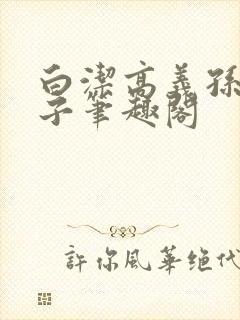 白潔高義孫
子筆趣閣
許你風華绝代